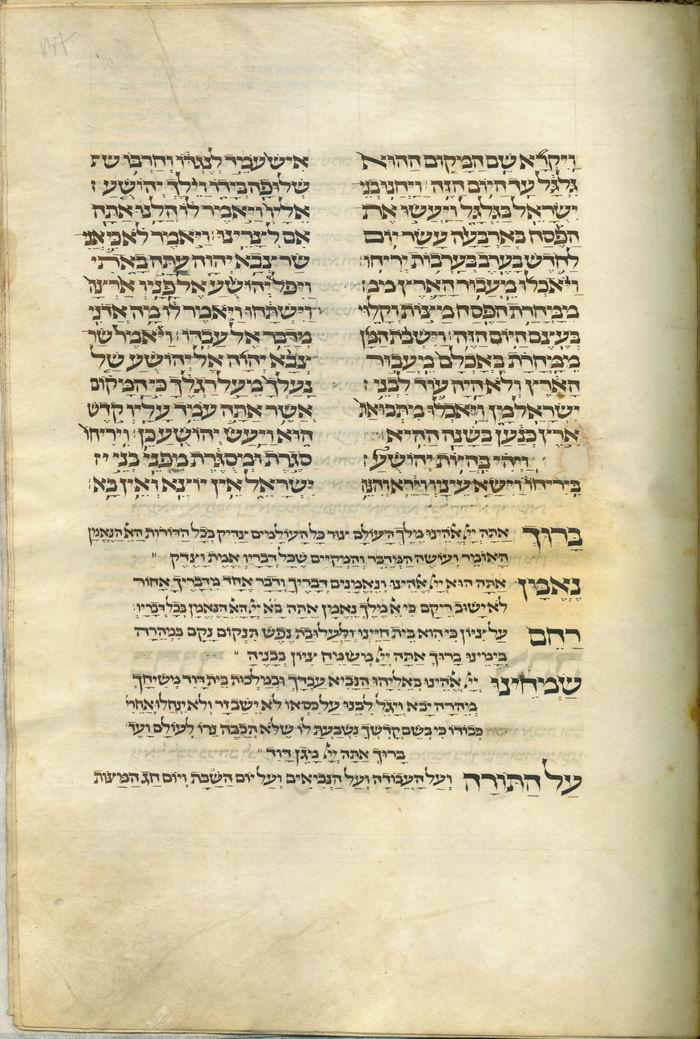 ויקרא שם המקום ההוא
גלגל עד היום הזה ויחנו בני
ישראל בגלגל ויעשו את
הפסח בארבעה עשר יום
לחדש בערב בערבות יריחו
ויאכלו מעבור הארץ ממ
ממחרת הפסח מצות וקלוי
בעצם היום הזה וישבת המן
ממחרת באכלם מעבור
הארץ ולא היה עוד לבני
ישראל מן ויאכלו מתבואת
ארץ כנען בשנה ההיא
ויהי בהיות יהושע
ביריחו וישא עיניו וירא והנה
איש עמד לנגדו וחרבו ש
שלופה בידו וילך יהושע
אליו ויאמר לו הלנו אתה
אם לצרינו ויאמר לא כי אני
שר צבא יהוה עתה באתי
ויפל יהושע אל פניו ארצה
וישתחו ויאמר לו מה אדני
מדבר אל עבדו ויאמר שר
צבא יהוה אל יהושע של
נעלך מעל רגלך כי המקום
אשר אתה עמד עליו קדש
הוא ויעש יהושע כן ויריחו
סגרת ומסגרת מפני בני י
ישראל אין יוצא ואין בא
ברוך אתה ייי אלהינו מלך העולם צור כל העולמים צדיק בכל הדורות האל הנאמן
האומר ועושה המדבר והמקיים שכל דבריו אמת וצדק
נאמן אתה הוא ייי אלהינו ונאמנים דבריך ודבר אחד מדבריך אחור
לא ישוב ריקם כי אל מלך נאמן אתה בא ייי האל הנאמן בכל דבריו
רחם על ציון כי היא בית חיינו ולעלובת נפש תנקום נקם במהרה
בימינו ברוך אתה ייי משמח ציון בבניה
שמחינו ייי אלהינו באליהו הנביא עבדך ובמלכות בית דוד משיחך
מהרה יבא ויגל לבנו על כסאו לא ישב זר ולא ינחלו אחרי
כבודו כי בשם קדשך נשבעת לו שלא תכבה נרו לעולם ועד
ברוך אתה ייי מגן דוד
על התורה ועל העבודה ועל הנביאים ועל יום השבת ויום חג המצות